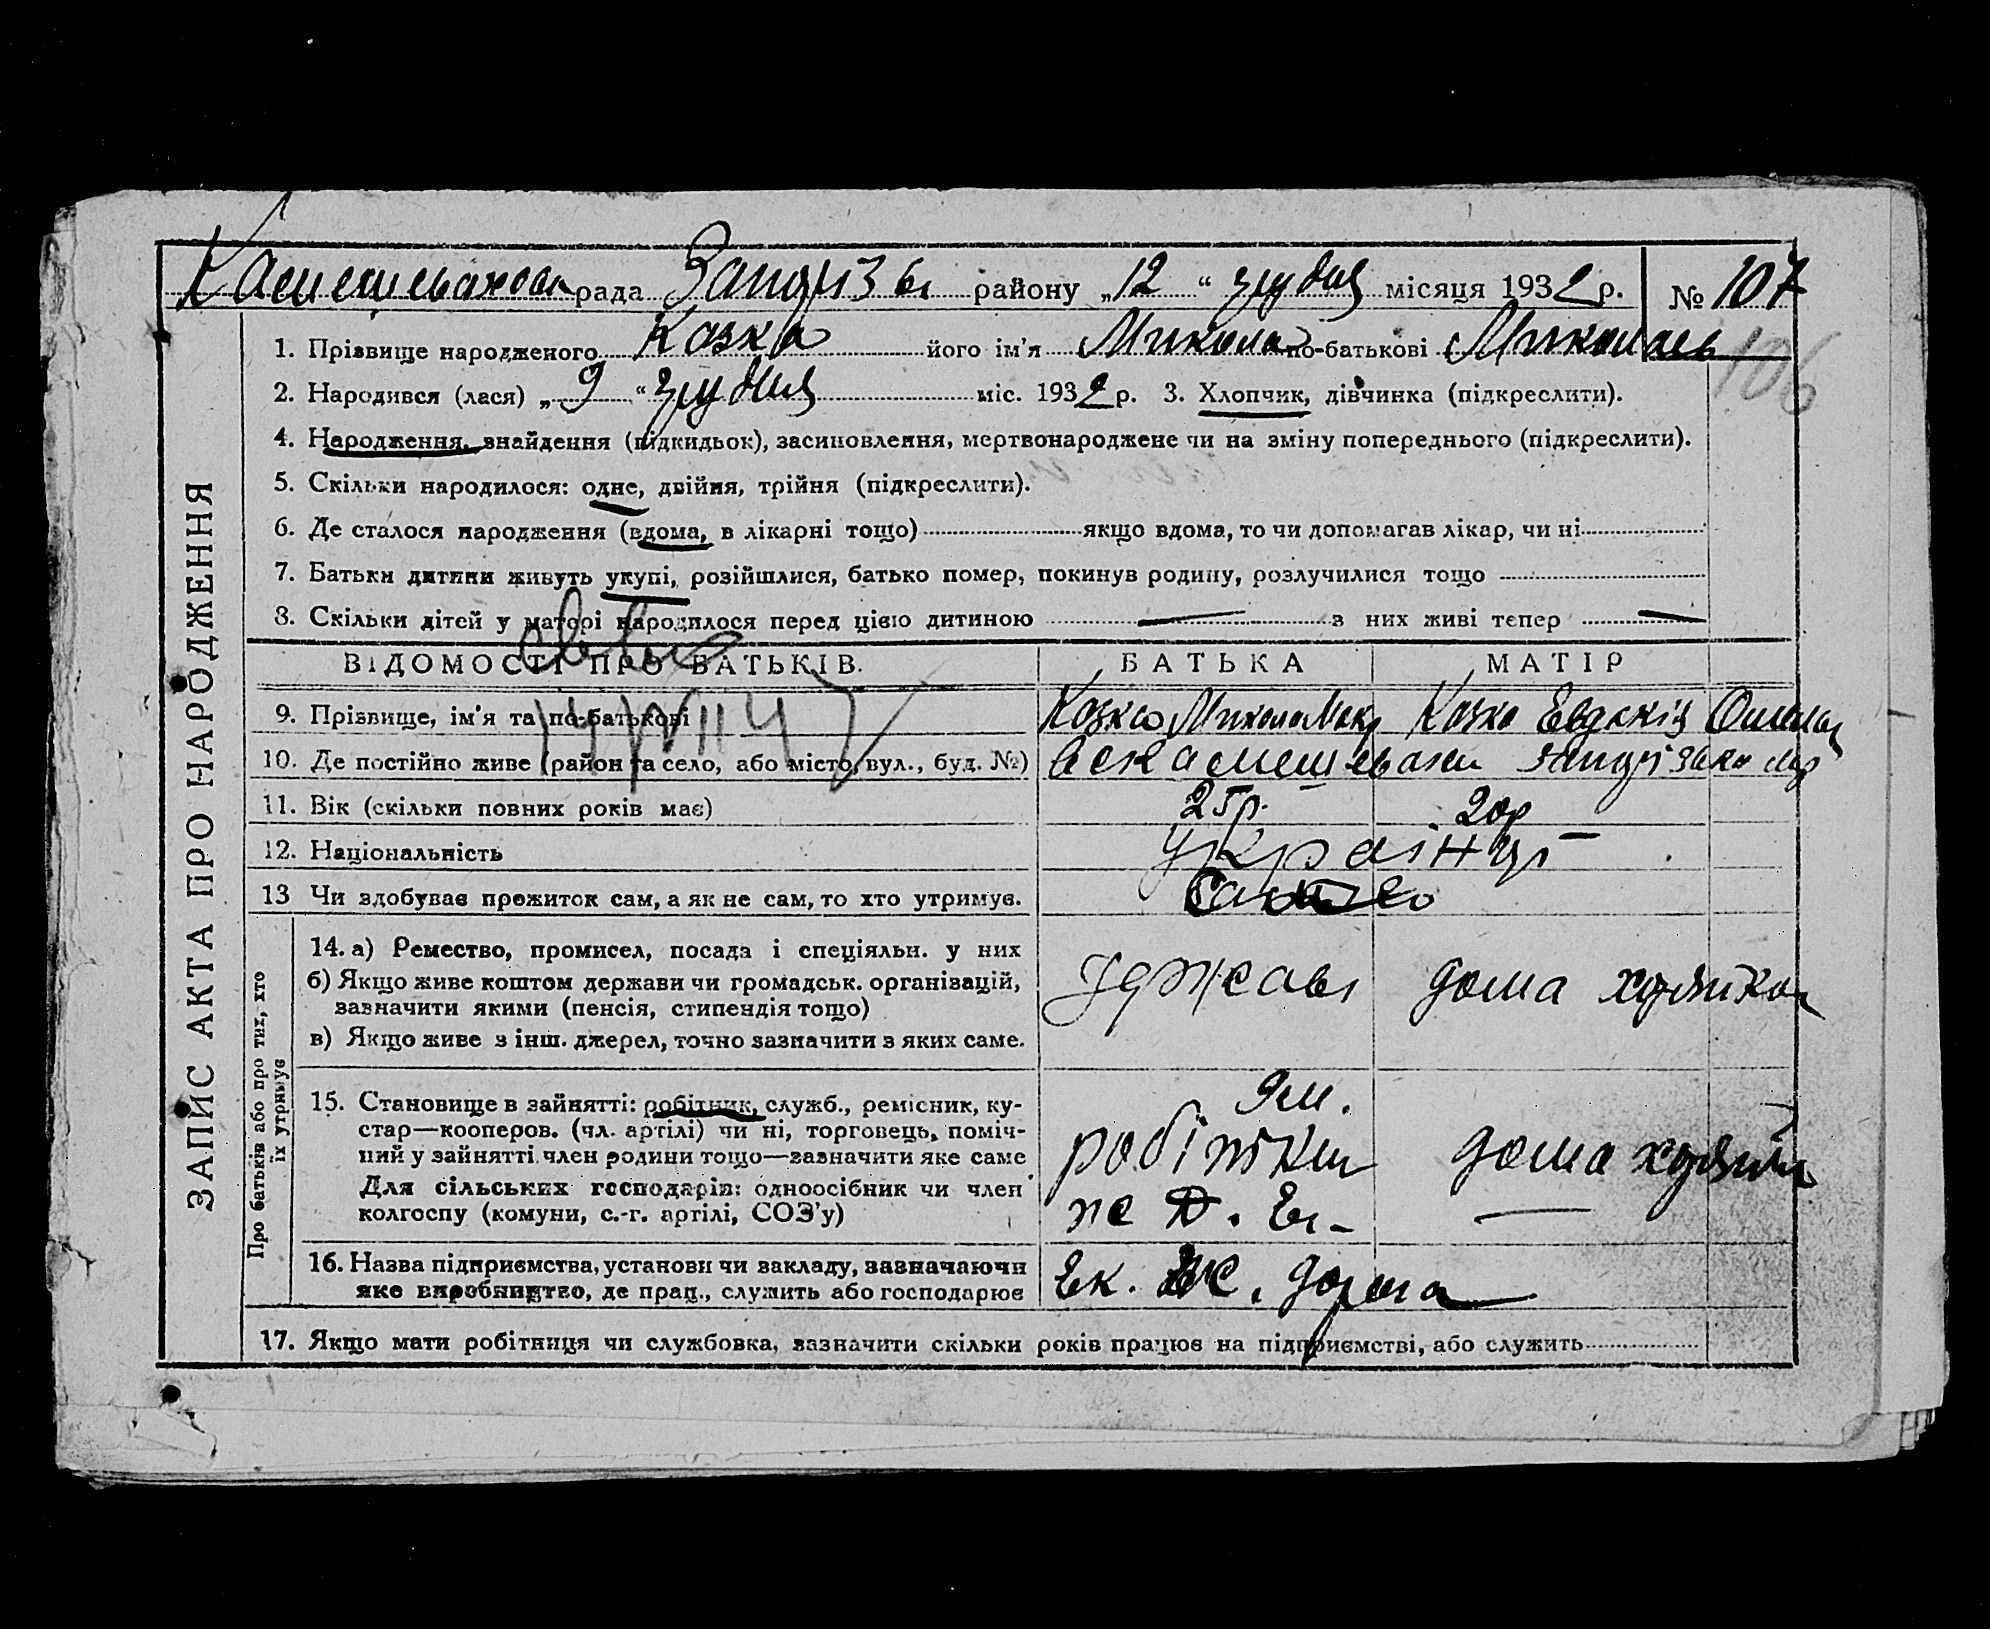 Камешеваховськ рада Запоріз їв району „12“ грудня місяця 1932 р. № 107
1. Прізвище народженого Козко його ім'я Микола по-батькові Миколаєв
106
2. Народився (лася) „9“ грудня міс. 1932 р. 3. Хлопчик, дівчинка (підкреслити).
4. Народження, знайдення (підкидьок), засиновлення, мертвонароджене чи на зміну попереднього (підкреслити).
5. Скільки народилося: одне, двійня, трійня (підкреслити).
6. Де сталося народження (вдома, в лікарні тощо) якщо вдома, то чи допомагав лікар, чи ні
7. Батьки дитини живуть укупі, розійшлися, батько помер, покинув родину, розлучилися тощо
8. Скільки дітей у матері народилося перед цією дитиною — з них живі тепер —
ЗАПИС АКТА ПРО НАРОДЖЕННЯ
ВІДОМОСТІ ПРО БАТЬКІВ. БАТЬКА МАТІР
9. Прізвище, ім'я та по-батькові Козко Микола Мак Козко Евдокія
10. Де постійно живе (район та село, або місто, вул., буд. №)
11. Вік (скільки повних років має) 25 р. 20 р
12. Національність Українці
13 Чи здобуває прожиток сам, а як не сам, то хто утримує.
Про батьків або про тих, хто їх утримує
14. а) Ремество, промисел, посада і спеціяльн. у них
б) Якщо живе коштом держави чи громадськ. організацій,
зазначити якими (пенсія, стипендія тощо)
в) Якщо живе з інш. джерел, точно зазначити з яких саме.
дома хазяйка
15. Становище в зайнятті: робітник, служб., ремісник, ку-
стар—кооперов. (чл. артілі) чи ні, торговець, поміч-
ний у зайнятті член родини тощо—зазначити яке саме
Для сільських господарів: одноосібник чи член
колгоспу (комуни, с.-г. артілі, СОЗ'у)
робітник дома хазяйка
16. Назва підприємства, установи чи закладу, зазначаючи
яке виробництво, де прац., служить або господарює
17. Якщо мати робітниця чи службовка, зазначити скільки років працює на підприємстві, або служить